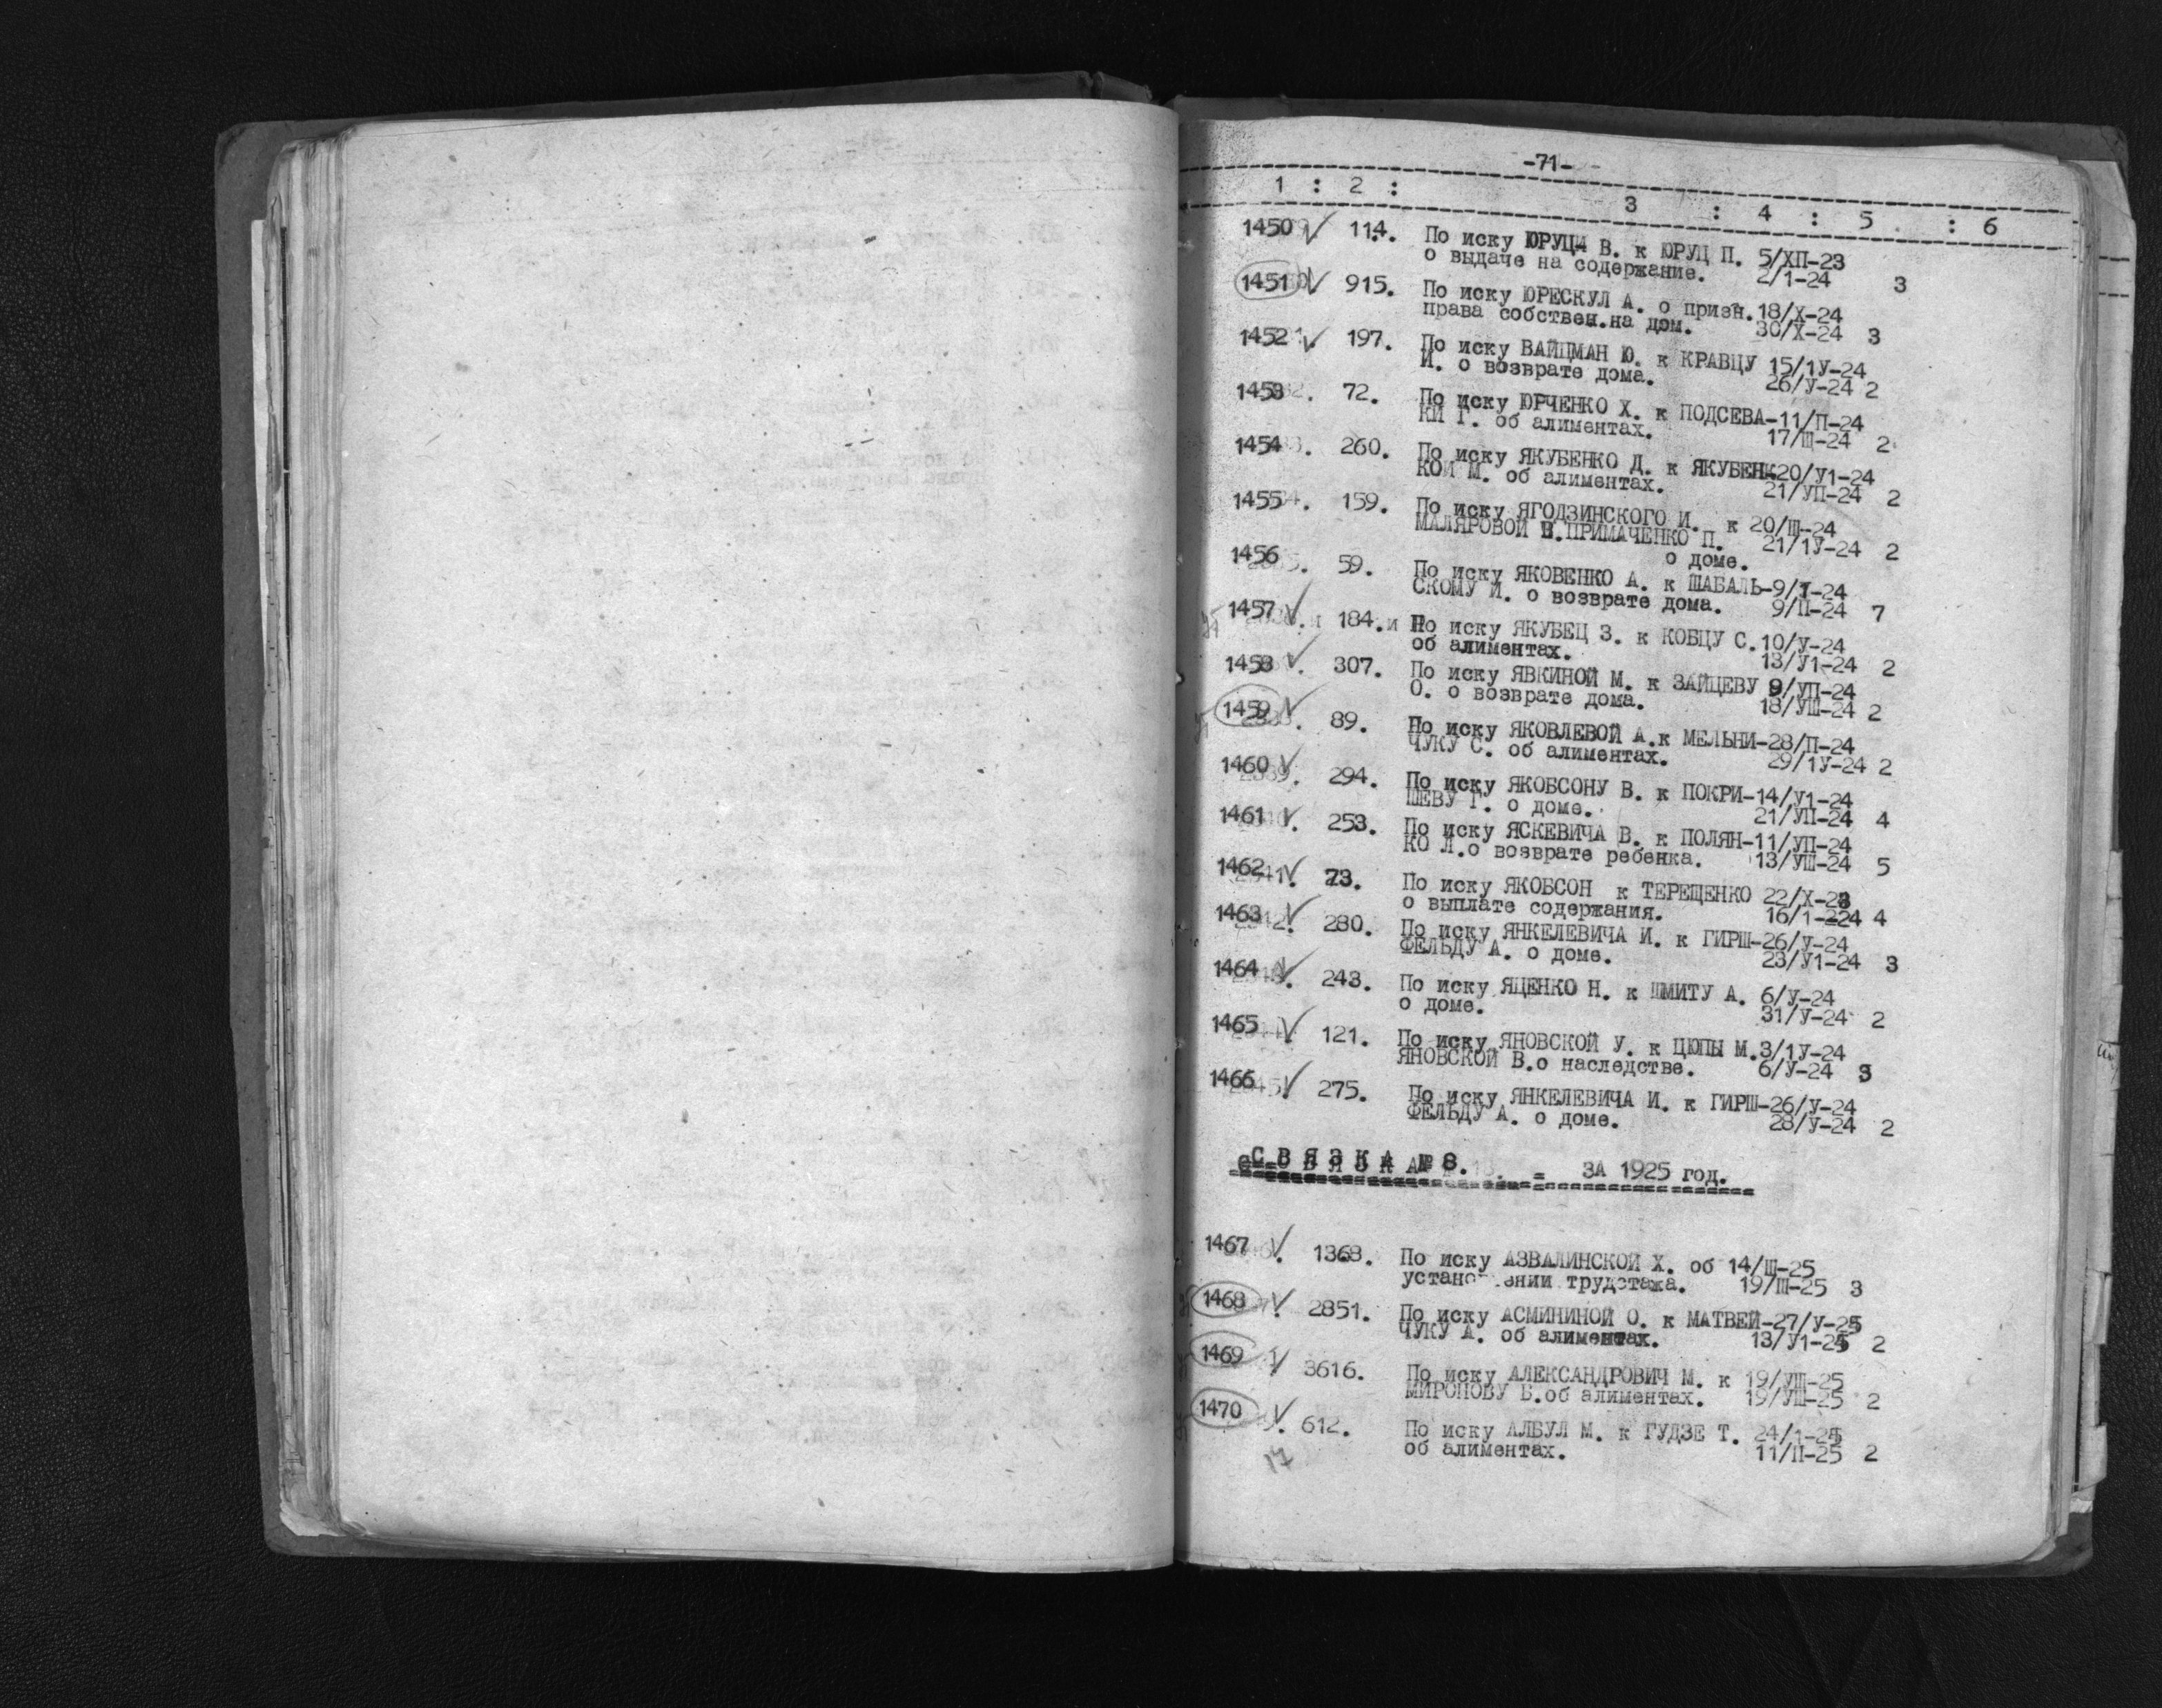 -71-
1 : 2 : 3 : 4 : 5 : 6
1450 114. По иску ЮРУЦИ В. к ЮРУЦ П. 5/ХП-23
о выдаче на содержание. 2/1-24 3
1451 915. По иску ЮРЕСКУЛ А. о призн. 18/Х-24
права собствен.на дом. 30/Х-24 3
1452 197. По иску ВАЙЦМАН Ю. к КРАВЦУ 15/1У-24
И. о возврате дома. 26/У-24 2
1453 72. По иску ЮРЧЕНКО Х. к ПОДСЕВА-11/П-24
КИ Г. об алиментах. 17/Ш-24 2
1454 260. По иску ЯКУБЕНКО Д. к ЯКУБЕНК 20/У1-24
КОЙ М. об алиментах. 21/УП-24 2
1455 159. По иску ЯГОДЗИНСКОГО И. к 20/Ш-24
МАЛЯРОВОЙ В.ПРИМАЧЕНКО П. 21/1У-24 2
о доме.
1456 59. По иску ЯКОВЕНКО А. к ШАБАЛЬ-9/1-24
СКОМУ И. о возврате дома. 9/П-24 7
1457 184.и По иску ЯКУБЕЦ З. к КОБЦУ С.10/У-24
об алиментах. 13/У1-24 2
1458 307. По иску ЯВКИНОЙ М. к ЗАЙЦЕВУ 9/УП-24
О. о возврате дома. 18/УШ-24 2
1459 89. По иску ЯКОВЛЕВОЙ А.к МЕЛЬНИ-28/П-24
ЧУКУ С. об алиментах. 29/1У-24 2
1460 294. По иску ЯКОБСОНУ В. к ПОКРИ-14/У1-24
ШЕВУ Г. о доме. 21/УП-24 4
1461 253. По иску ЯСКЕВИЧА В. к ПОЛЯН-11/УП-24
КО Л.о возврате ребенка. 13/УШ-24 5
1462 73. По иску ЯКОБСОН к ТЕРЕЩЕНКО 22/Х-23
о выплате содержания. 16/1-224 4
1463 280. По иску ЯНКЕЛЕВИЧА И. к ГИРШ-26/У-24
ФЕЛЬДУ А. о доме. 23/У1-24 3
1464 243. По иску ЯЦЕНКО Н. к ШМИТУ А. 6/У-24
о доме. 31/У-24 2
1465 121. По иску ЯНОВСКОЙ У. к ЦЮПЫ М.3/1У-24
ЯНОВСКОЙ В.о наследстве. 6/У-24 3
1466 275. По иску ЯНКЕЛЕВИЧА И. к ГИРШ-26/У-24
ФЕЛЬДУ А. о доме. 28/У-24 2
СВЯЗКА № 8. = ЗА 1925 год.
1467 1368. По иску АЗВАЛИНСКОЙ Х. об 14/Ш-25
установлении трудстажа. 19/Ш-25 3
1468 2851. По иску АСМИНИНОЙ О. к МАТВЕЙ-27/У-25
ЧУКУ А. об алиментах. 13/У1-25 2
1469 3616. По иску АЛЕКСАНДРОВИЧ М. к 19/УШ-25
МИРОНОВУ В.об алиментах. 19/УШ-25 2
1470 612. По иску АЛБУЛ М. к ГУДЗЕ Т. 24/1-25
об алиментах. 11/П-25 2
17